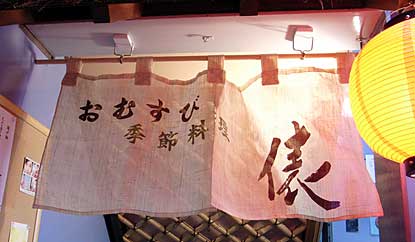 おむすび
季節料理
俵